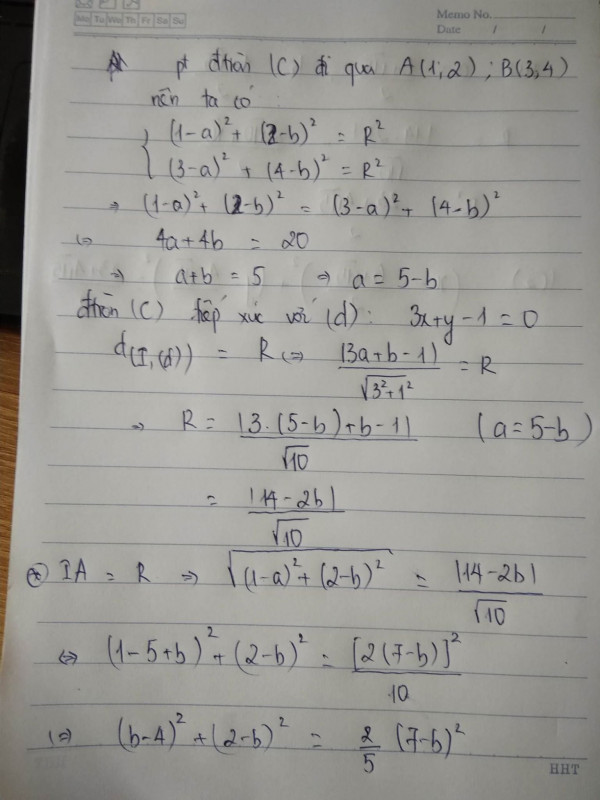 Memo No.
Mo Tu We Th Fr Sa Su
Date / /
pt đtròn (C) đi qua A(1;2) ; B(3,4)
nên ta có
(1-a)² + (2-b)² = R²
(3-a)² + (4-b)² = R²
⇒ (1-a)² + (2-b)² = (3-a)² + (4-b)²
⇔ 4a+4b = 20
⇒ a+b = 5 ⇒ a = 5-b
đtròn (C) tiếp xúc với (d): 3x+y-1=0
d(I,(d)) = R ⇔ |3a+b-1| / √3²+1² = R
⇒ R = |3.(5-b)+b-1| / √10 (a=5-b)
= |14-2b| / √10
* IA = R ⇒ √(1-a)²+(2-b)² = |14-2b| / √10
⇔ (1-5+b)² + (2-b)² = [2(7-b)]² / 10
⇔ (b-4)² + (2-b)² = 2/5 (7-b)²
HHT